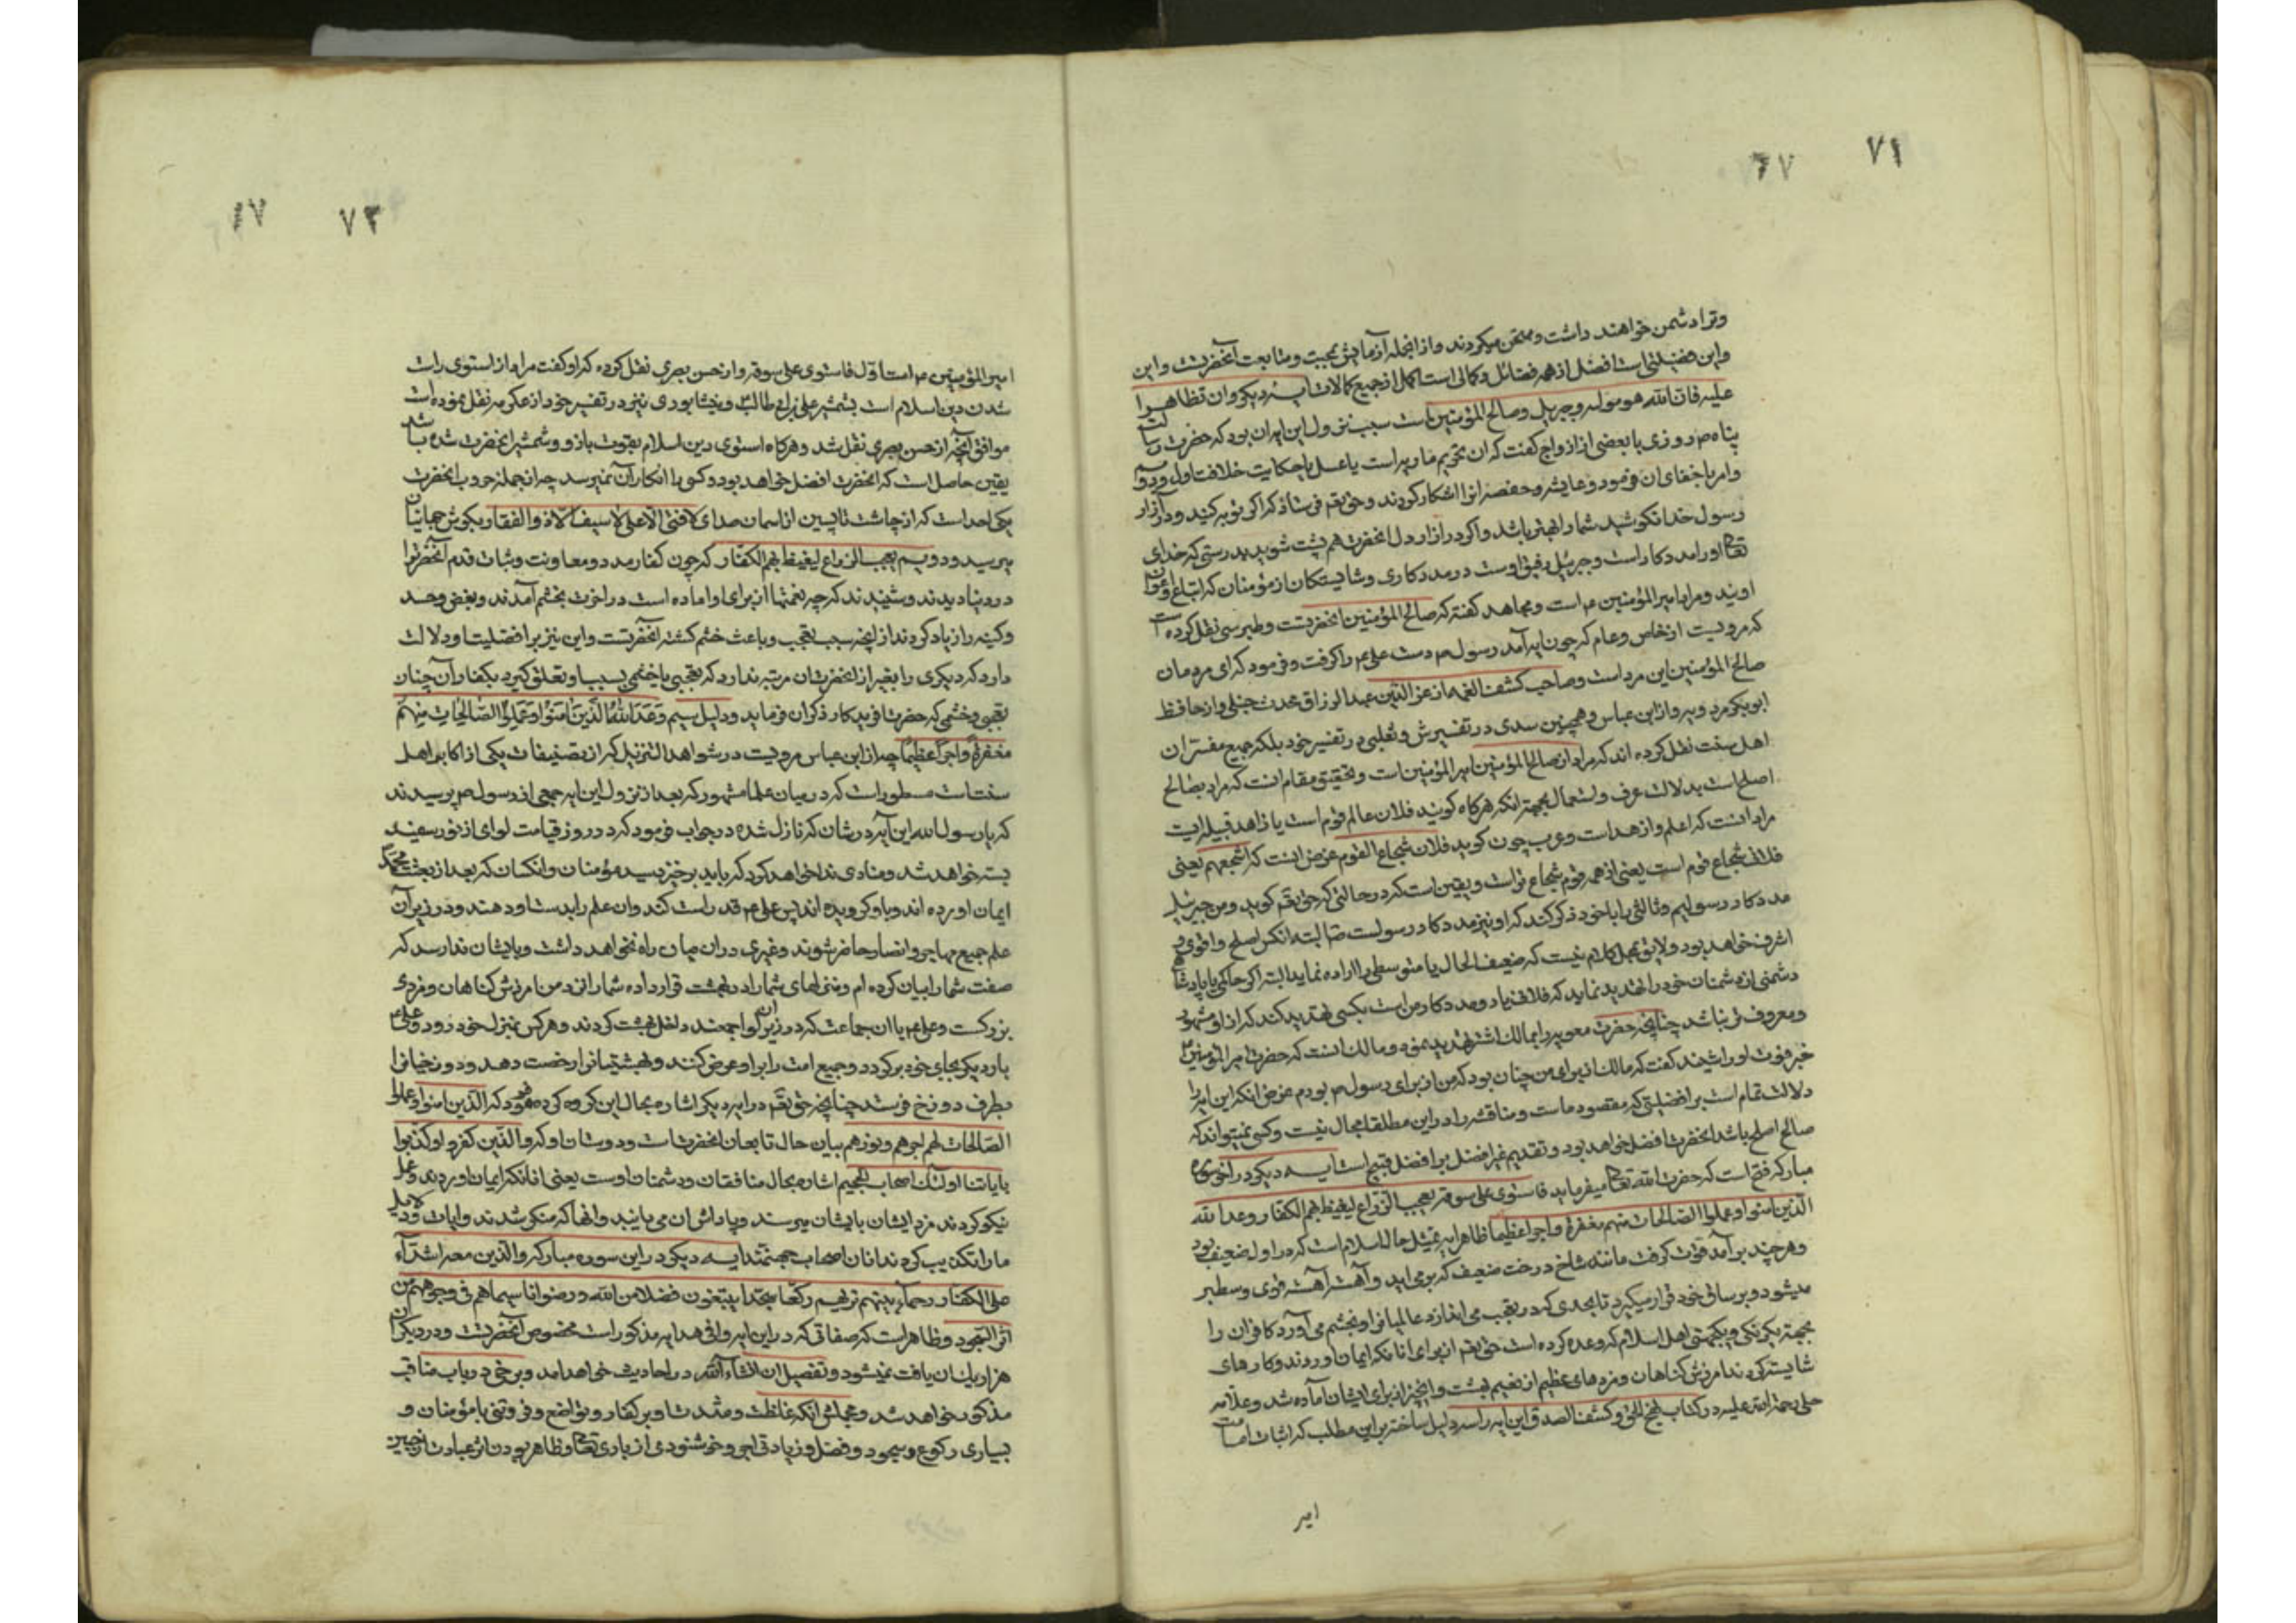 ۷۱
۶۷
وترا دشمن خواهند داشت وممتحن میکردند وازانجمله آزمایش بمحبت ومتابعت آنحضرتست واین
واین فضیلتی است افضل از همه فضائل وکمالی است اکمل از جمیع کمالات ایـه دیکر وان تظاهرا
علیه فان الله هو مولیه وجبریل وصالح المؤمنین است سبب نزول این ایه ان بود که حضرت رسالت
پناه ص روزی با بعضی از ازواج کفت که ان تحریم ماریه است یا عسل یا حکایت خلافت اول ودوم
وامر باخفای ان فرمود وعایشه وحفصه انرا اشکار کردند وحق تعم فرستاد که اکر توبه کنید ودر آزار
رسول خدا نکوشید شما را بهتر باشد واکر در ازار دل انحضرت هم پشت شوید بدرستی که خدای
تعالی اورا مددکار است وجبرئیل رفیق اوست در مددکاری وشایستکان از مؤمنان که اتباع واعوان
اویند ومراد امیرالمؤمنین ع است ومجاهد کفته که صالح المؤمنین انحضرتست وطبرسی نقل کرده است
که مرویست از خاص وعام که چون ایه آمد رسول ص دست علی ع را کرفت وفرمود که ای مردمان
صالح المؤمنین این مرد است وصاحب کشف الغمه از عز الدین عبد الرزاق محدث حنبلی واز حافظ
ابو بکر مردویه واز ابن عباس وهمچنین سدی در تفسیرش وثعلبی در تفسیر خود بلکه جمیع مفسران
اهل سنت نقل کرده اند که مراد از صالح المؤمنین امیر المؤمنین است وتحقیق مقام انست که مراد بصالح
اصلح است بدلالت عرف واستعمال بجهة انکه هرکاه کویند فلان عالم قوم است یا زاهد قبیله ایست
مراد انست که اعلم وازهد است وعرب چون کوید فلان شجاع القوم غرض اینست که اشجعهم یعنی
فلان شجاع قوم است یعنی از همه قوم شجاع تر است ویقین است که در حالتی که حق تعم کوید ومن جبرئیل
مددکار رسولیم وثالثی را با خود ذکر کند که او نیز مددکار رسولست ص البته انکس اصلح واقوی و
اشرف خواهد بود ولایق بمحل کلام نیست که ضعیف الحال یا متوسطی را اراده نماید البته اکر حاکمی یا پادشاهی
دشمنی از دشمنان خود را تهدید نماید که فلان یاور ومددکار من است بکسی تهدید کند که از او مشهور
ومعروف تر نباشد چنانچه حضرت معویه را بمالک اشتر تهدید نمود ومالک انست که حضرت امیر المؤمنین ع
خبر فوت او را شنید کفت که مالک از برای من چنان بود که من از برای رسول ص بودم غرض انکه این ایه را
دلالت تمام است بر افضلیتی که مقصود ماست ومناقشه را در این مطلقا مجال نیست وکسی نمیتواند که
صالح اصلح باشد انحضرت افضل خواهد بود وتقدیم غیر افضل بر افضل قبیح است ایـه دیکر در اخر سوره
مبارکه فتح است که حضرت الله تعالی میفرماید فاستوی علی سوقه یعجب الزراع لیغیظ بهم الکفار وعد الله
الذین امنوا وعملوا الصالحات منهم مغفرة واجرا عظیما ظاهر ایه تمثیل حال اسلام است که در اول ضعیف بود
وهرچند برآمد قوت کرفت مانند شاخ درخت ضعیف که برمی اید وآهسته آهسته قوی وسطبر
میشود وبر ساق خود قرار میکیرد تا بحدی که در تعجب می اندازد عالمیانرا وبخشم می آورد کافران را
بجهة یکرنکی ویکجهتی اهل اسلام که وعده کرده است حق تعم از برای انانکه ایمان اوردند وکارهای
شایسته کردند امرزش کناهان ومزدهای عظیم از نعیم بهشت وانچه از برای ایشان آماده شد وعلامه
حلی رحمة الله علیه در کتاب نهج الحق وکشف الصدق این ایه را سه دلیل ساخته بر این مطلب که اثبات امامت
امیر
۷۲
۶۷
امیر المؤمنین ع است اول فاستوی علی سوقه واز حسن بصری نقل کرده که او کفت مراد از استوی راست
شدن دین اسلام است بشمشیر علی بن ابی طالب ع ونیشابوری نیز در تفسیر خود از عکرمه نقل نموده است
موافق آنچه از حسن بصری نقل شد وهرکاه استوی دین اسلام بقوت بازو وشمشیر انحضرت شده باشد
یقین حاصل است که انحضرت افضل خواهد بود وکسی را انکار آن نمیرسد چه از جمله حروب انحضرت
یکی احد است که از چاشت تا پسین از اسمان صدای لا فتی الا علی لا سیف الا ذو الفقار بکوش جهانیان
میرسید ودویم یعجب الزراع لیغیظ بهم الکفار که چون کفار مدد ومعاونت وثبات قدم آنحضرترا
در دنیا دیدند وشنیدند که چه نعمتها از برای او اماده است در اخرت بخشم آمدند وبغض وحسد
وکینه را زیاد کردند از آنچه سبب تعجب وباعث خشم کشته انحضرتست واین نیز بر افضلیت او دلالت
دارد که دیکری را بغیر از انحضرت ان مرتبه ندارد که تعجبی یا خشمی بسبب او تعلق کیرد بکفار آن چنان
تعجبی وخشمی که حضرت افریدکار ذکر ان فرماید ودلیل سیم وَعَدَ اللهُ الَّذینَ امَنُوا وَعَمِلُوا الصّالِحاتِ مِنهُم
مَغفرةً واجراً عظیماً چه از ابن عباس مرویست در شواهد التنزیل که از تصنیفات یکی از اکابر اهل
سنت است مسطور است که در میان علما مشهور که بعد از نزول این ایه جمعی از رسول ص پرسیدند
که یا رسول الله این آیه در شان که نازل شده در جواب فرمود که در روز قیامت لوای از نور سفید
بسته خواهد شد ومنادی ندا خواهد کرد که باید برخیزد سید مؤمنان وانکسان که بعد از بعثت محمد
ایمان اورده اند وباو کرویده اند پس علی ع قد راست کند وان علم را بدست او دهند ودر زیر آن
علم جمیع مهاجر وانصار حاضر شوند وغیری در ان میان راه نخواهد داشت وبایشان ندا رسد که
صفت شما را بیان کرده ام ومنزلهای شما را در بهشت قرار داده شما را نزد من امرزش کناهان ومزدی
بزرکست وعلی ع با ان جماعت که در زیر ان لوا جمعند داخل بهشت کردند وهرکس بمنزل خود رود وعلی ع
بار دیکر بجای خود برکردد وجمیع امت را بر او عرض کنند وبهشتیانرا رخصت دهد ودوزخیانرا
بطرف دوزخ فرستد چنانچه حق تعم در ایه دیکر اشاره بحال این کروه کرده فرمود که الذین امنوا وعملوا
الصالحات لهم اجرهم ونورهم بیان حال تابعان انحضرتست ودوستان او که والذین کفروا وکذبوا
بایاتنا اولئک اصحاب الجحیم اشاره بحال منافقان ودشمنان اوست یعنی انانکه ایمان اوردند وعمل
نیکو کردند مزد ایشان بایشان میرسد وپاداش ان می یابند وانها که منکر شدند وایات ودلایل
ما را تکذیب کردند انان اصحاب جهنمند ایـه دیکر در این سوره مبارکه والذین معه اشداء
علی الکفار رحماء بینهم تریهم رکعا سجدا یبتغون فضلا من الله ورضوانا سیماهم فی وجوههم من
اثر السجود وظاهر است که صفاتی که در این ایه وافی هدایه مذکور است مخصوص آنحضرتست ودر دیکران
هزار یک ان یافت نمیشود وتفصیل ان انشاء الله در احادیث خواهد امد وبرخی در باب مناقب
مذکور خواهد شد ومجملش انکه غلظت وشدت او بر کفار وتواضع وفروتنی با مؤمنان و
بسیاری رکوع وسجود وفضل وزیادتی اجر وخوشنودی از باری تعالی وظاهر بودن اثر عبادت از جبین